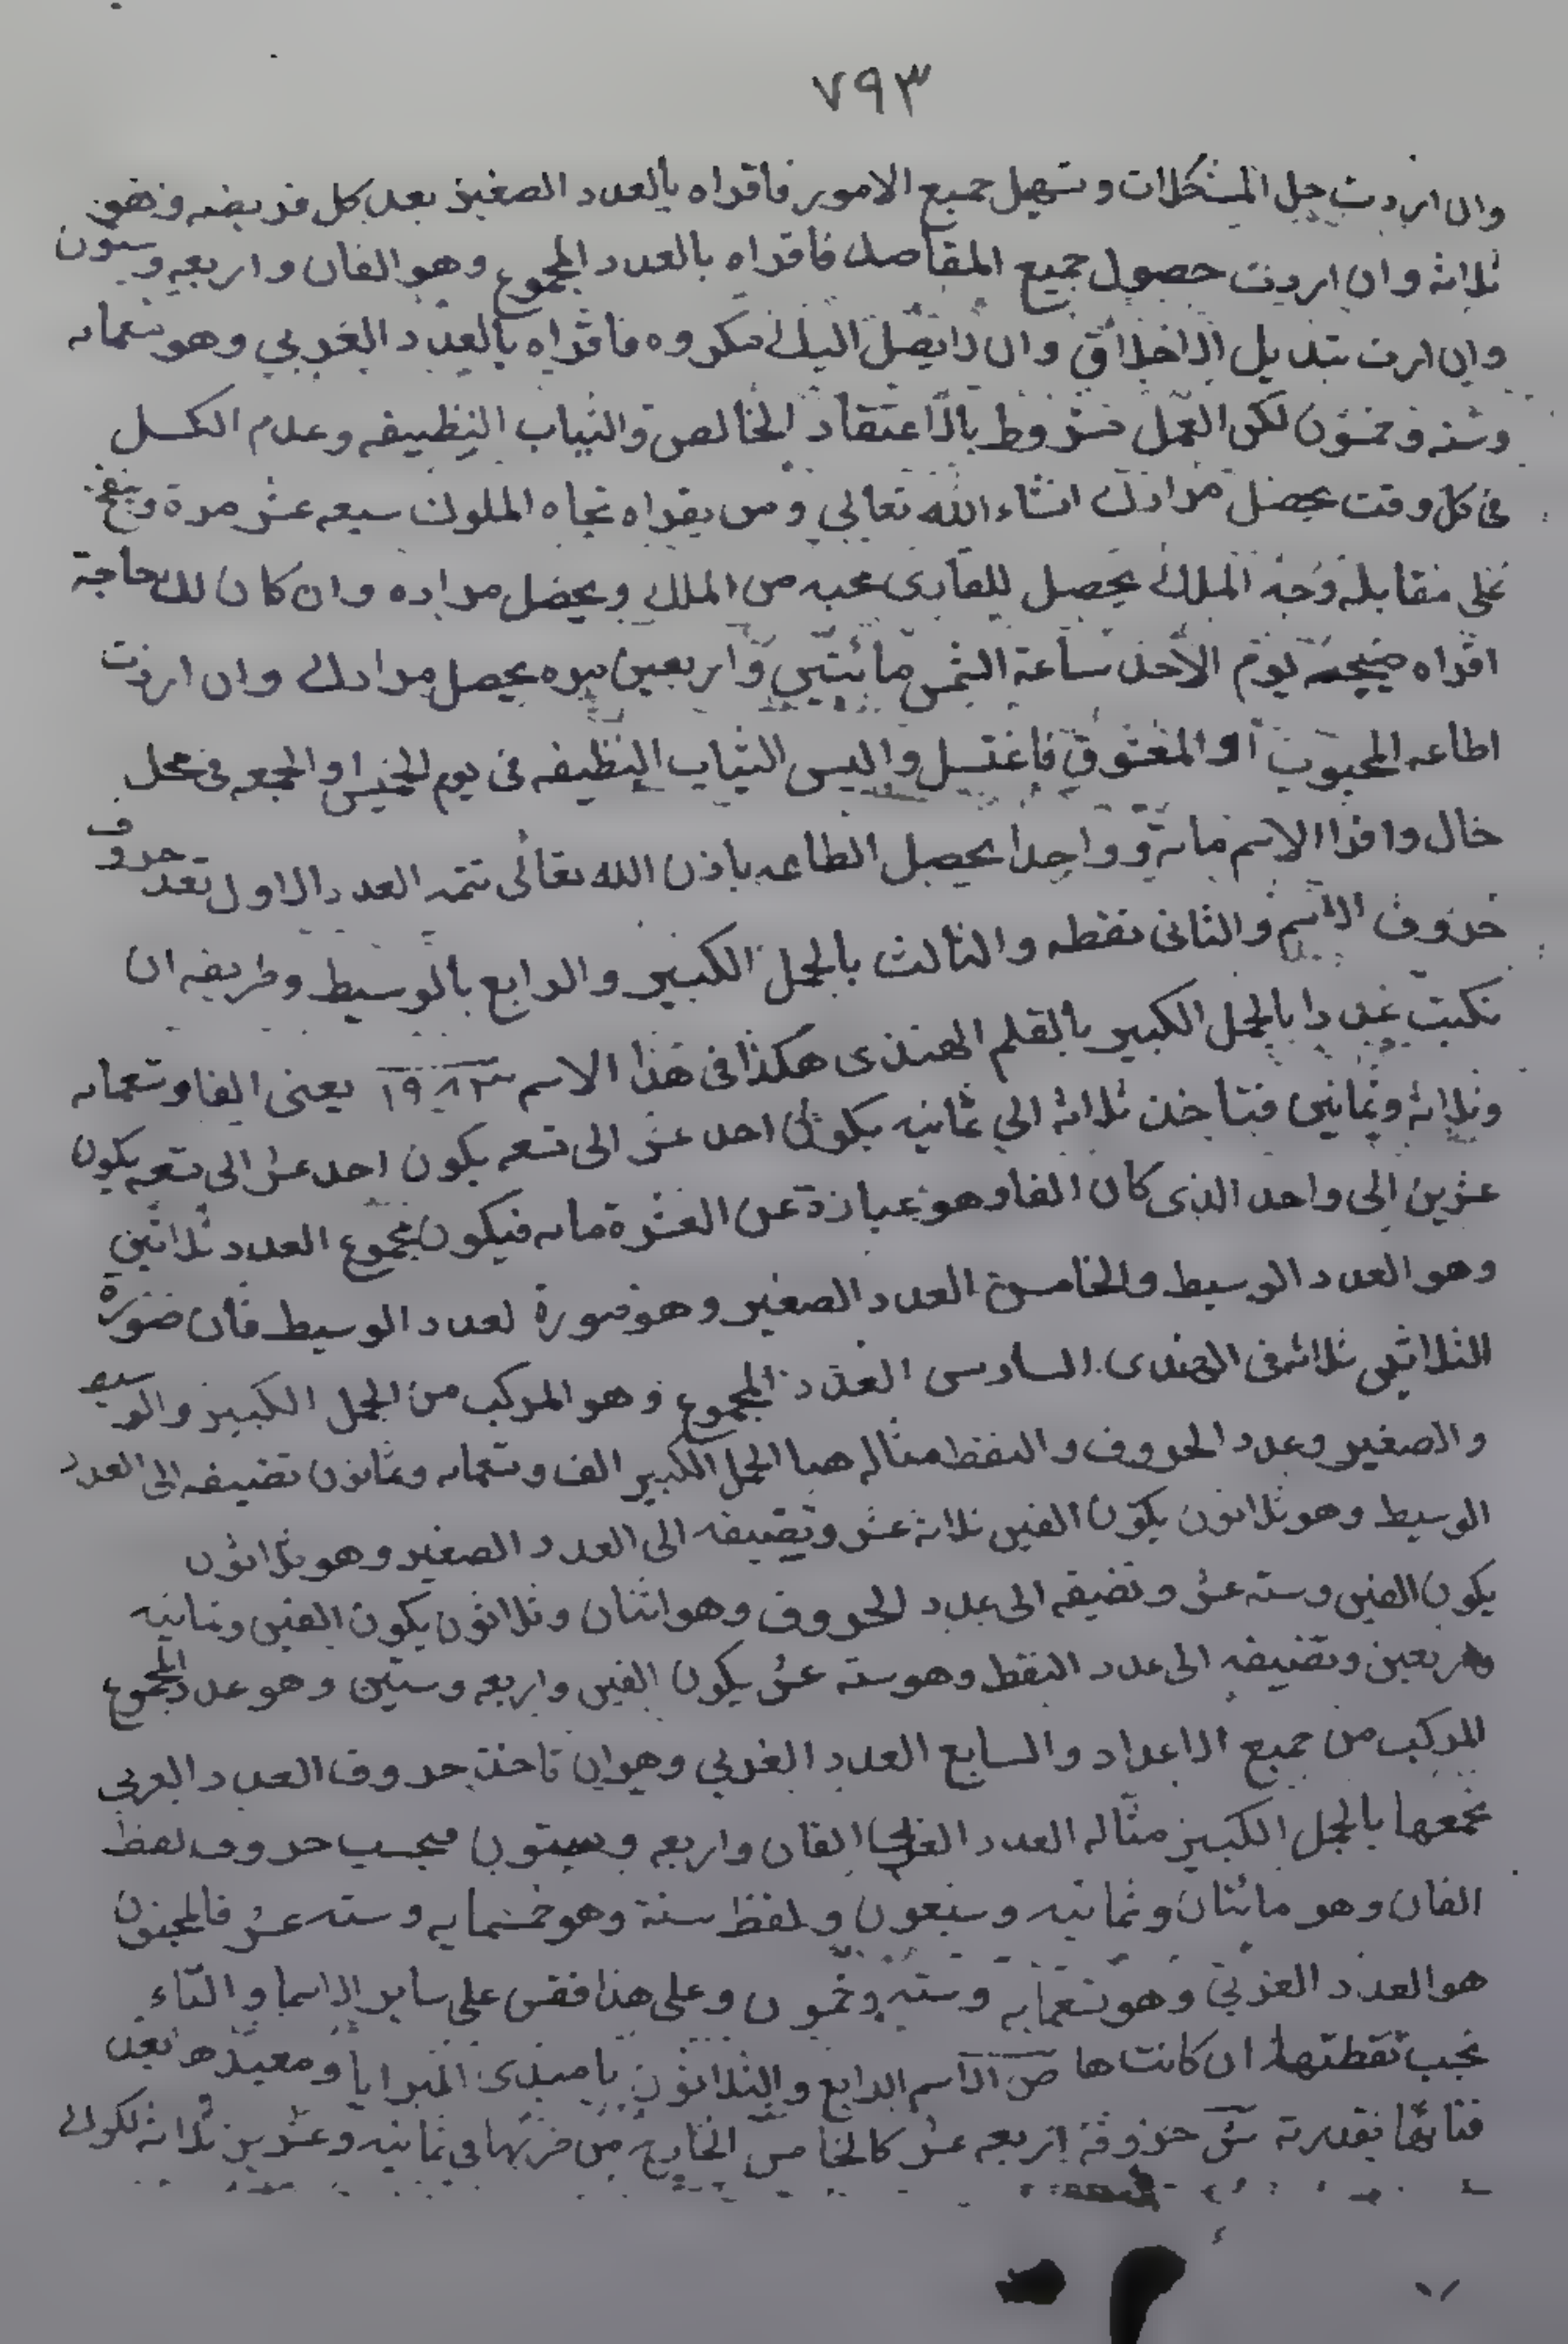 ٧٩٣
وان اردت حل المشكلات وتسهيل جميع الامور فاقراه بالعدد الصغير بعد كل فريضه وهو
ثلاثة وان اردت حصول جميع المقاصد فاقراه بالعدد المجموع وهو الفان واربعه وستون
وان اردت تبديل الاخلاق وان لا يصل اليك مكروه فاقراه بالعدد الغربي وهو تسعمايه
وسته وخمسون لكن العمل مشروط بالاعتقاد الخالص والثياب النظيفه وعدم الكسل
فى كل وقت يحصل مرادك انشاء الله تعالى ومن يقراه تجاه الملوك سبعه عشر مرة وينفخ
على مقابلة وجه الملك يحصل للقارى محبه من الملك ويحصل مراده وان كان لك حاجة
اقراه صبيحة يوم الاحد ساعة الشمس مائتين واربعين مره يحصل مرادك وان اردت
اطاعه المحبوب او المعشوق فاغتسل والبس الثياب النظيفه فى يوم الخميس او الجمعه فى محل
خال واقرا الاسم مائة وواحدا يحصل الطاعه باذن الله تعالى تتمه العدد الاول تعد حروف
حروف الاسم والثانى نقطه والثالث بالجمل الكبير والرابع بالوسيط وطريقه ان
تكتب عددا بالجمل الكبير بالقلم الهندى هكذا فى هذا الاسم ١٩٨٣ يعنى الفا وتسعمايه
وثلاثة وثمانين فتاخذ ثلاثة الي ثمانيه يكون احد عشر الى تسعه يكون احد عشر الى تسعه يكون
عشرين الى واحد الذى كان الفا وهو عبارة عن العشرة مايه فيكون مجموع العدد ثلاثين
وهو العدد الوسيط والخامس العدد الصغير وهو صورة لعدد الوسيط فان صورة
الثلاثين ثلاثه فى الهندى السادس العدد المجموع وهو المركب من الجمل الكبير والوسيط
والصغير وعدد الحروف والنقط مثاله هبا الجمل الكبير الف وتسعمايه وثمانون تضيفه الى العدد
الوسيط وهو ثلاثون يكون الفين ثلاثة عشر وتضيفه الى العدد الصغير وهو ثلاثون
يكون الفين وسته عشر وتضيفه الى عدد الحروف وهو اثنان وثلاثون يكون الفين وثمانيه
واربعين وتضيفه الى عدد النقط وهو سته عشر يكون الفين واربعه وستين وهو عدد المجموع
المركب من جميع الاعداد والسابع العدد الغربي وهو ان تاخذ حروف العدد العربي
تجمعها بالجمل الكبير مثاله العدد الغربي الفان واربعه وستون فيحسب حروف لفظ
الفان وهو مائتان وثمانيه وسبعون ولفظ ستة وهو خمسمايه وسته عشر فالمجنون
هو العدد الغربي وهو تسعمايه وسته وخمسون وعلى هذا فقس على ساير الاسما والتاء
تحسب نقطتها ان كانت ها ص الاسم الرابع والثلاثون يا مبدى البرايا ومعيدها بعد
فنائها بقدرته ش حروفه اربعه عشر كالخامس الخارج من ضربها فى ثمانيه وعشرين ثلاثة لكواك